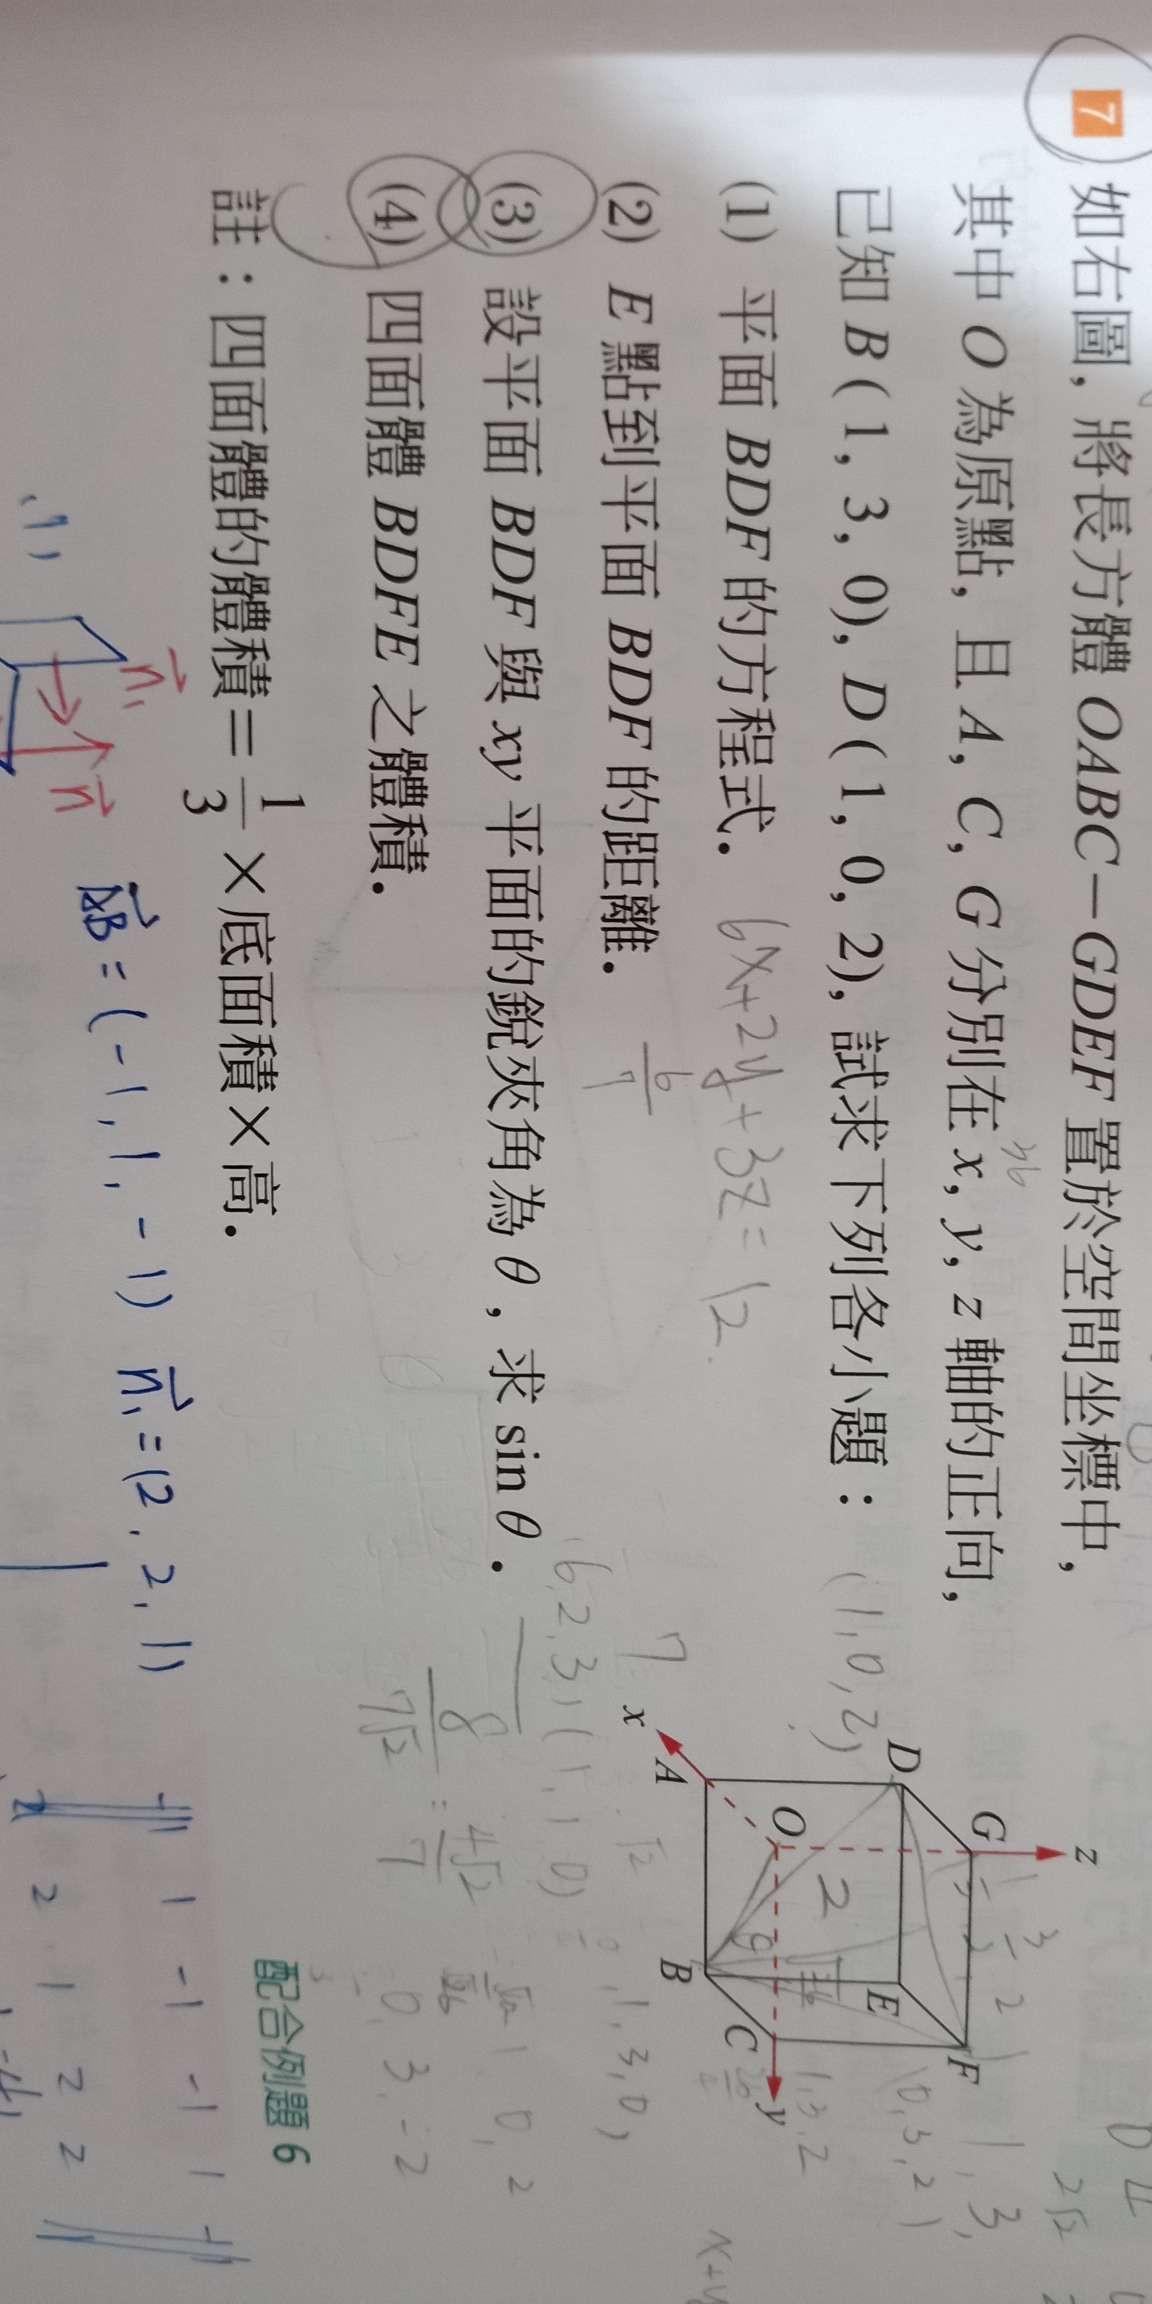 7 如右圖，將長方體 OABC－GDEF 置於空間坐標中，
其中 O 為原點，且 A, C, G 分別在 x, y, z 軸的正向，
已知 B(1, 3, 0), D(1, 0, 2), 試求下列各小題：
(1) 平面 BDF 的方程式． 6x+2y+3z=12
(2) E 點到平面 BDF 的距離． 6/7
(3) 設平面 BDF 與 xy 平面的銳夾角為 θ，求 sin θ．
(4) 四面體 BDFE 之體積．
註：四面體的體積＝1/3×底面積×高．
配合例題 6
z
G
F
D
E
O
C
y
A
B
x
(1,0,2)
2
(0,3,2)
1,3,2
1,3,0)
1 0, 2
0, 3, -2
6,2,3)(1,1 0)
7
√2
8/7√2 = 4√2/7
2√2
n₁
n
AB = (-1, 1, -1) n₁ = (2, 2, 1)
-1 1 -1 -1 1 -1
2 2 1 2 2